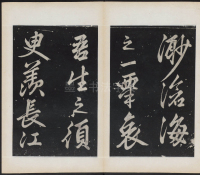 渺滄海
之一粟哀
吾生之須
臾羨長江